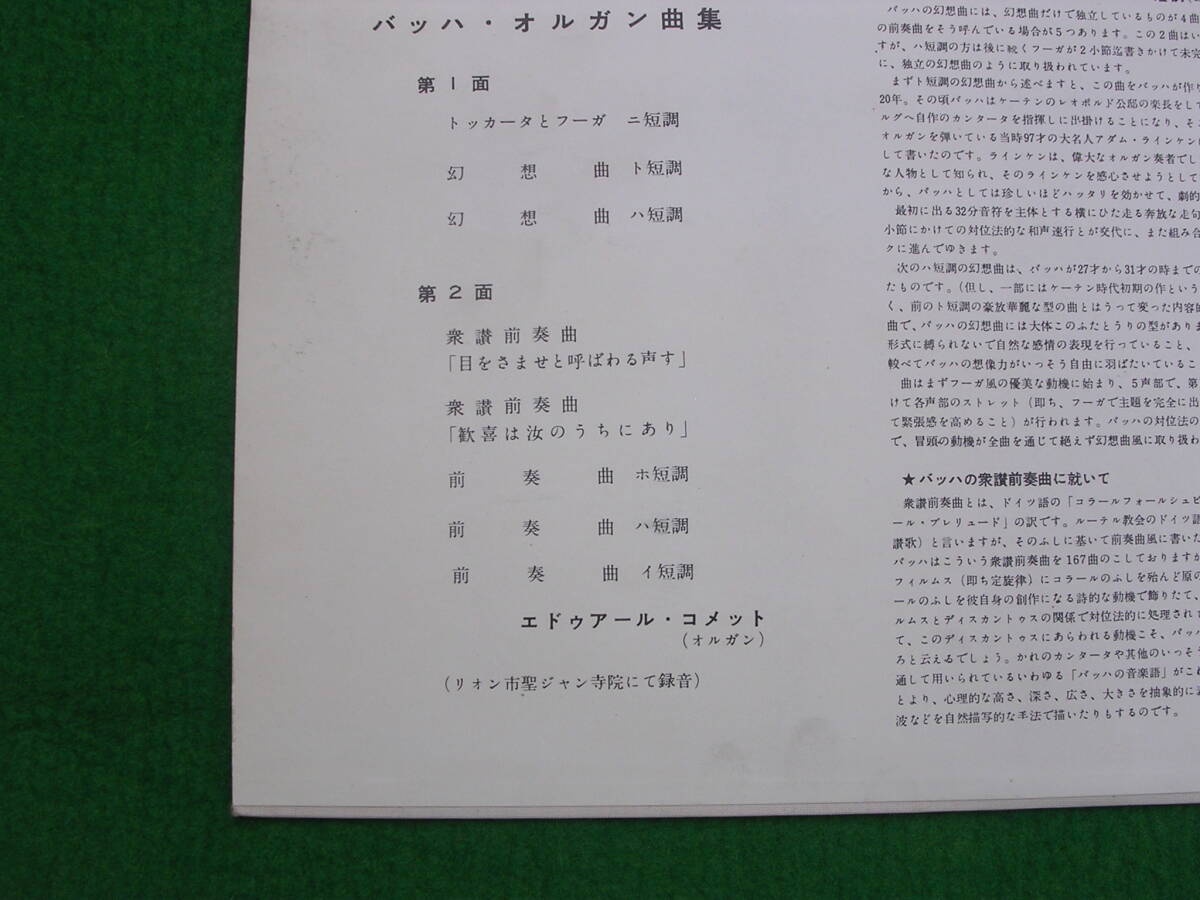 バッハ・オルガン曲集
第1面
トッカータとフーガ ニ短調
幻想曲 ト短調
幻想曲 ハ短調
第2面
衆讃前奏曲
「目をさませと呼ばわる声す」
衆讃前奏曲
「歓喜は汝のうちにあり」
前奏曲 ホ短調
前奏曲 ハ短調
前奏曲 イ短調
エドゥアール・コメット
(オルガン)
(リオン市聖ジャン寺院にて録音)
バッハの幻想曲には、幻想曲だけで独立しているものが4曲
の前奏曲をそう呼んでいる場合が5つあります。この2曲はい
すが、ハ短調の方は後に続くフーガが2小節迄書きかけて未完
に、独立の幻想曲のように取り扱われています。
まずト短調の幻想曲から述べますと、この曲をバッハが作り
20年。その頃バッハはケーテンのレオポルド公邸の楽長をして
ルグへ自作のカンタータを指揮しに出掛けることになり、そこ
オルガンを弾いている当時97才の大名人アダム・ラインケンに
して書いたのです。ラインケンは、偉大なオルガン奏者でし
な人物として知られ、そのラインケンを感心させようとして
から、バッハとしては珍しいほどハッタリを効かせて、劇的
最初に出る32分音符を主体とする横にひた走る奔放な走句
小節にかけての対位法的な和声進行とが交代に、また組み合
クに進んでゆきます。
次のハ短調の幻想曲は、バッハが27才から31才の時までの
たものです。(但し、一部にはケーテン時代初期の作という
く、前のト短調の豪放華麗な型の曲とはうって変った内容的
曲で、バッハの幻想曲には大体このふたとうりの型がありま
形式に縛られないで自然な感情の表現を行っていること、
較べてバッハの想像力がいっそう自由に羽ばたいているこ
曲はまずフーガ風の優美な動機に始まり、5声部で、第
けて各声部のストレット(即ち、フーガで主題を完全に出
て緊張感を高めること)が行われます。バッハの対位法の
で、冒頭の動機が全曲を通じて絶えず幻想曲風に取り扱わ
★バッハの衆讃前奏曲に就いて
衆讃前奏曲とは、ドイツ語の「コラールフォールシュピ
ール・プレリュード」の訳です。ルーテル教会のドイツ語
讃歌)と言いますが、そのふしに基いて前奏曲風に書いた
バッハはこういう衆讃前奏曲を167曲のこしておりますが
フィルムス(即ち定旋律)にコラールのふしを殆んど原の
ールのふしを彼自身の創作になる詩的な動機で飾りたて、
ルムスとディスカントゥスの関係で対位法的に処理されて
て、このディスカントゥスにあらわれる動機こそ、バッハ
ろと云えるでしょう。かれのカンタータや其他のいっそう
通して用いられているいわゆる「バッハの音楽語」がこめ
とより、心理的な高さ、深さ、広さ、大きさを抽象的に
波などを自然描写的な手法で描いたりもするのです。